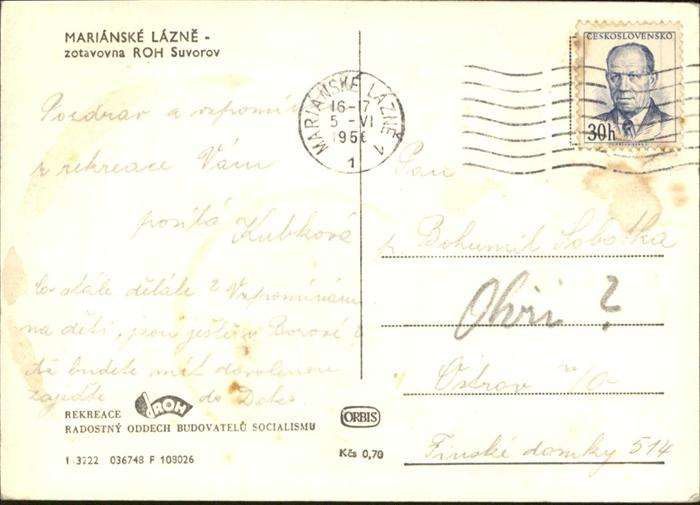 MARIÁNSKÉ LÁZNĚ -
zotavovna ROH Suvorov
ČESKOSLOVENSKO
30h
MARIÁNSKÉ LÁZNĚ 1
16-17
5 -VI
1956
1
Pozdrav a vzpomín
z rekreace Vám
posílá Kubková
Co stále děláte? Vzpomínám
na děti, jsou ještě v Borové
až budete mít dovolenou
zajeďte do Doks
Pan
p. Bohumil Sobotka
Ohři?
Ostrov n/O
Finské domky 514
REKREACE ROH
RADOSTNÝ ODDECH BUDOVATELŮ SOCIALISMU
ORBIS
1-3722 036748 F 108026
Kčs 0,70